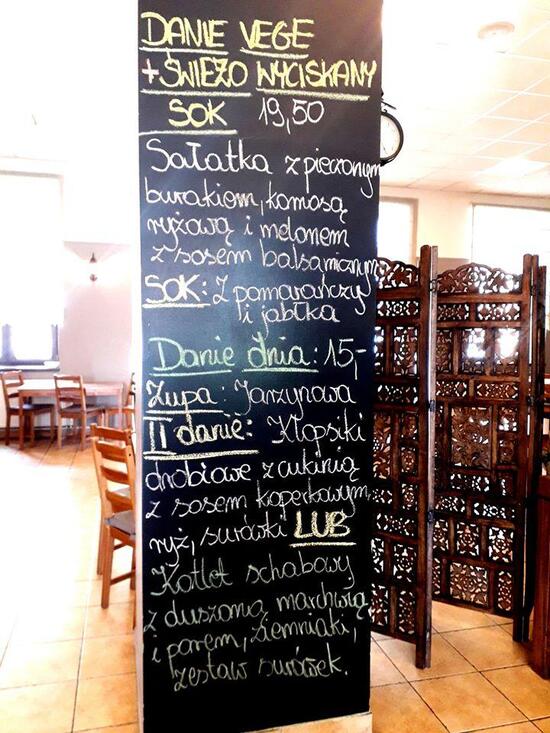 DANIE VEGE
+ ŚWIEŻO WYCISKANY
SOK 19,50
Sałatka z pieczonym
burakiem, komosą
ryżową i melonem
z sosem balsamicznym
SOK: Z pomarańczy
i jabłka
Danie dnia: 15,-
Zupa: Jarzynowa
II danie: Klopsiki
drobiowe z cukinią
z sosem koperkowym,
ryż, surówki LUB
Kotlet schabowy
z duszoną marchwią
i porem, ziemniaki,
zestaw surówek.